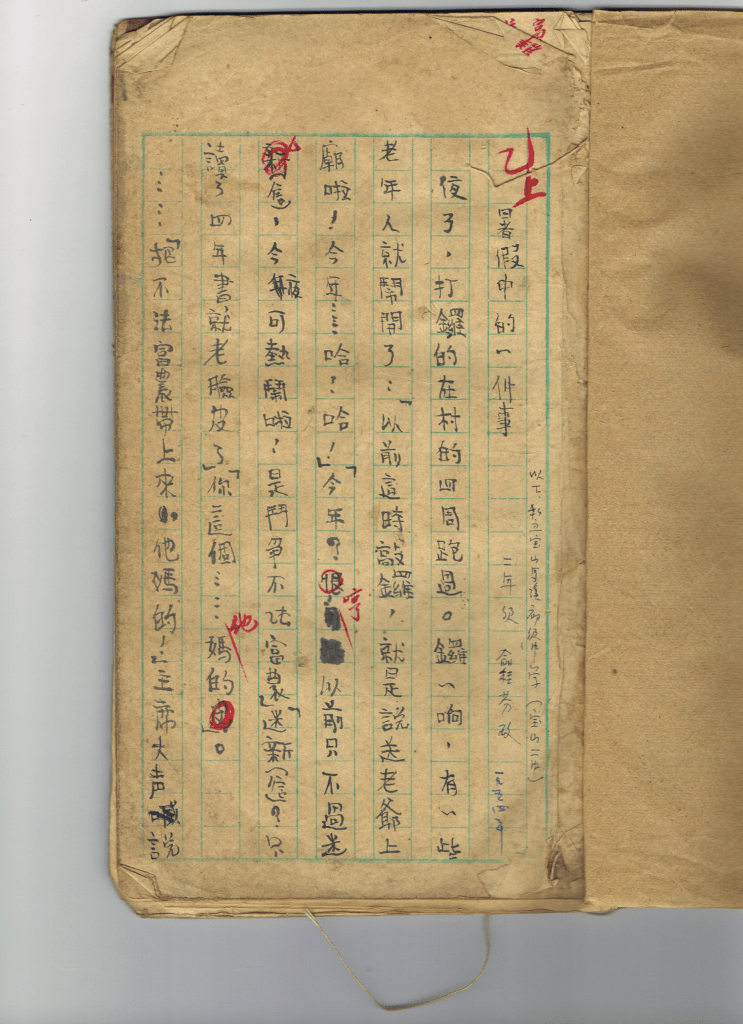 乙上
暑假中的一件事
二年級 俞桂芳改 一九五四年
夜了，打鑼的在村的四周跑過。鑼一响，有一些
老年人就鬧開了：「以前這時敲鑼，就是說送老爺上
廟啦！今年……哈？哈！」「今年？恨！哼以前只不過迷
信，今年夜可熱鬧啦！是鬥爭不法富農」「迷新（信）？只
讀了四年書就老臉皮了」「你這個……媽他的」。
……「把不法富農帶上來！他媽的！」主席大声喊說